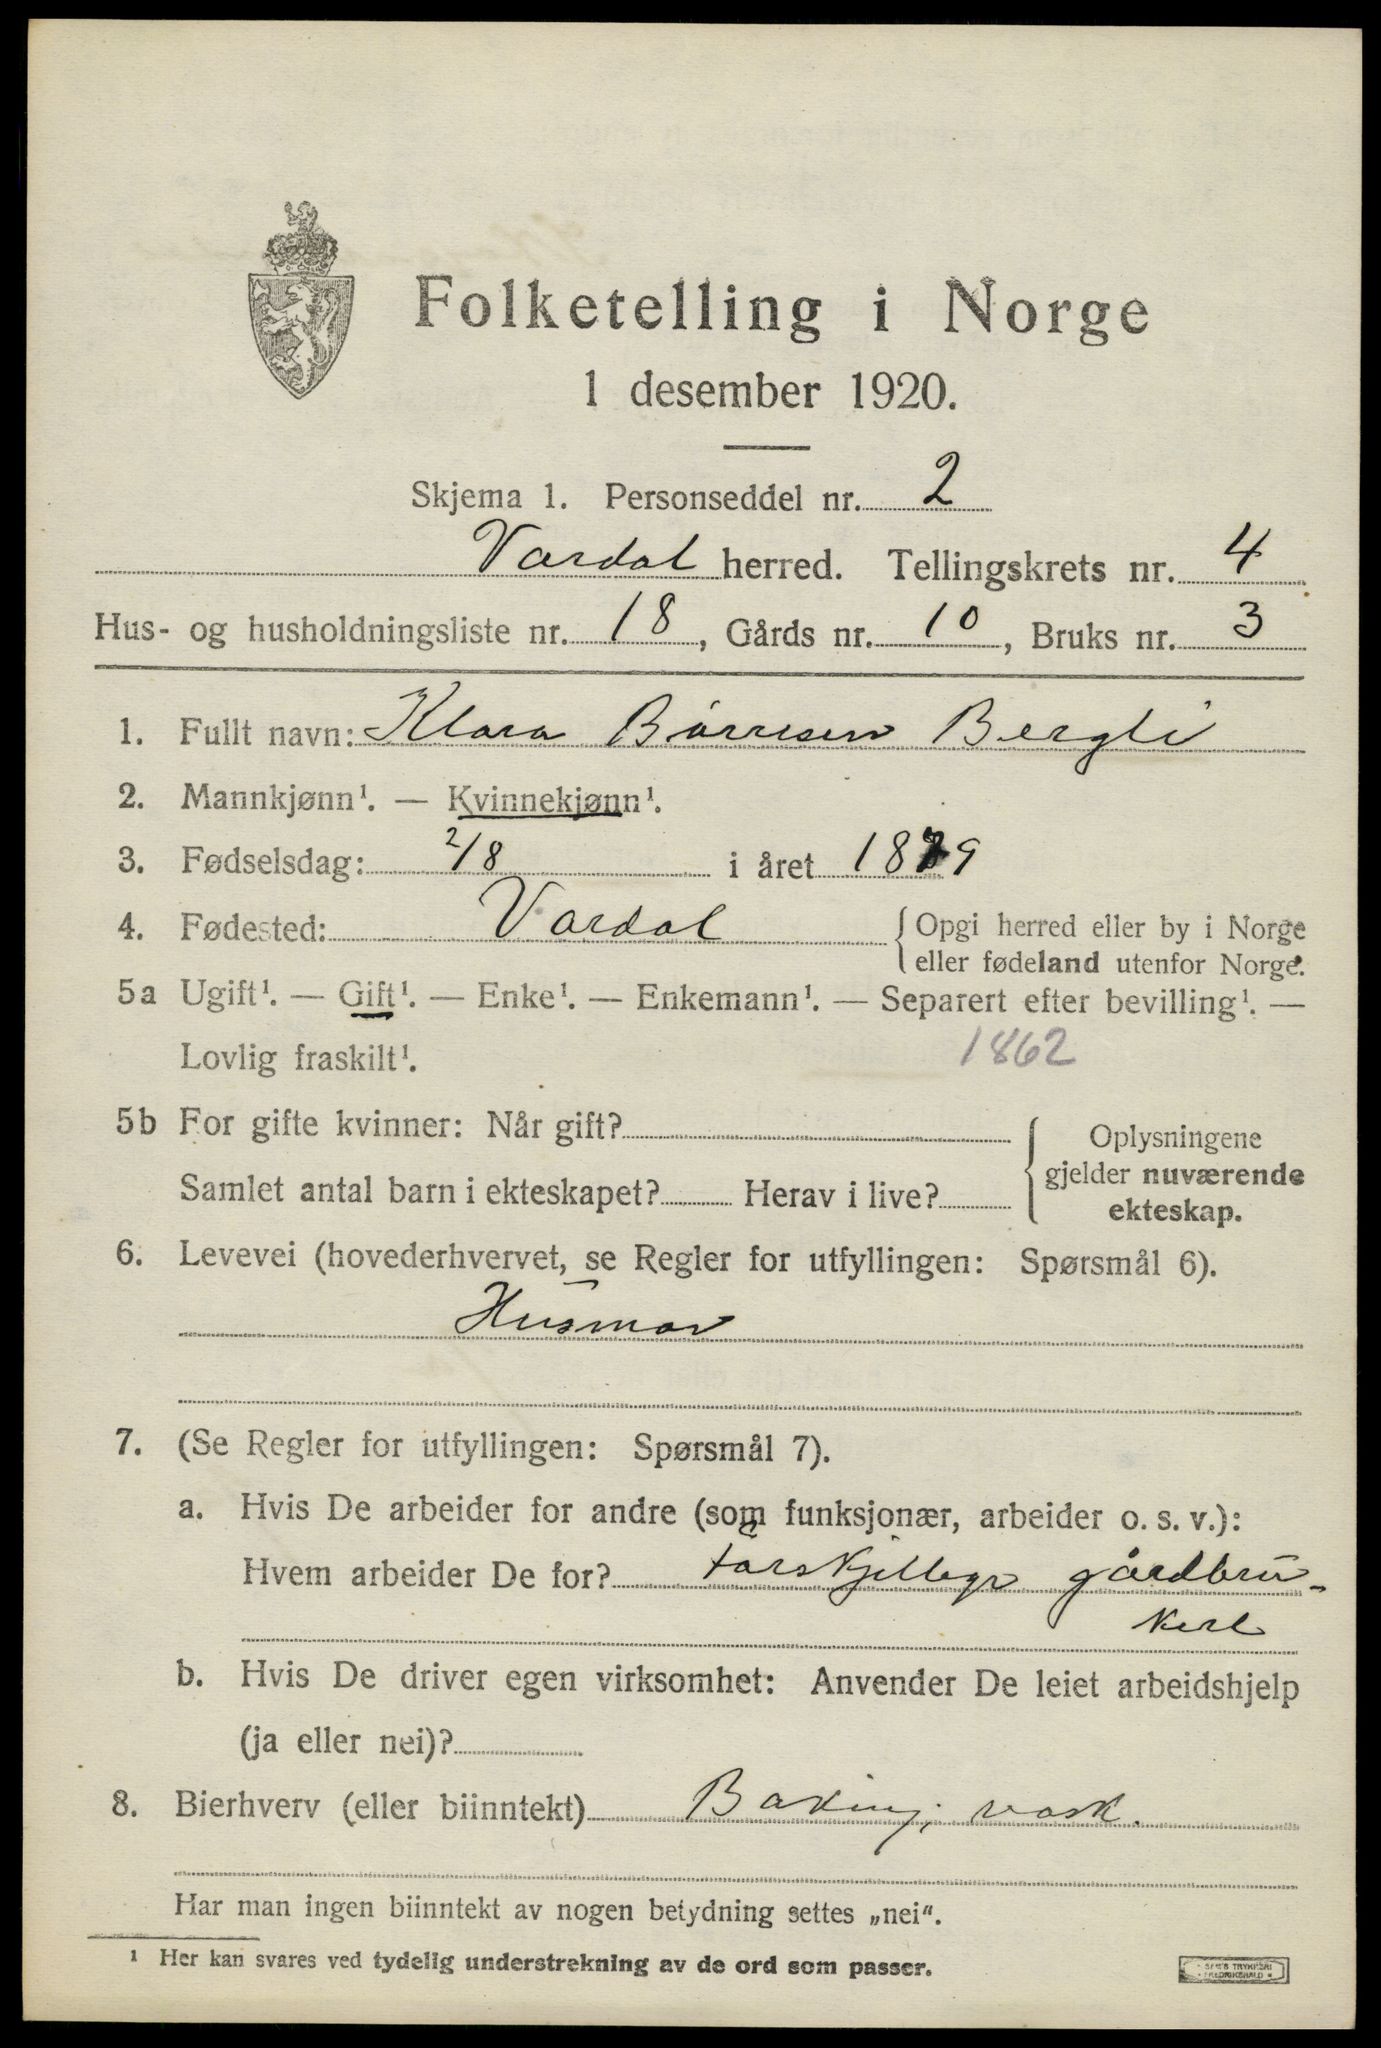 Folketelling i Norge
1 desember 1920.
Skjema 1. Personseddel nr. 2
Vardal herred. Tellingskrets nr. 4
Hus- og husholdningsliste nr. 18, Gårds nr. 10, Bruks nr. 3
1. Fullt navn: Klara Börresen Bergli
2. Mannkjønn¹. — Kvinnekjønn¹.
3. Fødselsdag: 2/8 i året 1879
4. Fødested: Vardal { Opgi herred eller by i Norge
eller fødeland utenfor Norge.
5a Ugift¹. — Gift¹. — Enke¹. — Enkemann¹. — Separert efter bevilling¹. —
Lovlig fraskilt¹. 1862
5b For gifte kvinner: Når gift?
Samlet antal barn i ekteskapet? Herav i live?
Oplysningene
gjelder nuværende
ekteskap.
6. Levevei (hovederhvervet, se Regler for utfyllingen: Spørsmål 6).
Husmor
7. (Se Regler for utfyllingen: Spørsmål 7).
a. Hvis De arbeider for andre (som funksjonær, arbeider o. s. v.):
Hvem arbeider De for? gårdbru-
b. Hvis De driver egen virksomhet: Anvender De leiet arbeidshjelp
(ja eller nei)?
8. Bierhverv (eller biinntekt) Baking, vask.
Har man ingen biinntekt av nogen betydning settes „nei“.
¹ Her kan svares ved tydelig understrekning av de ord som passer.